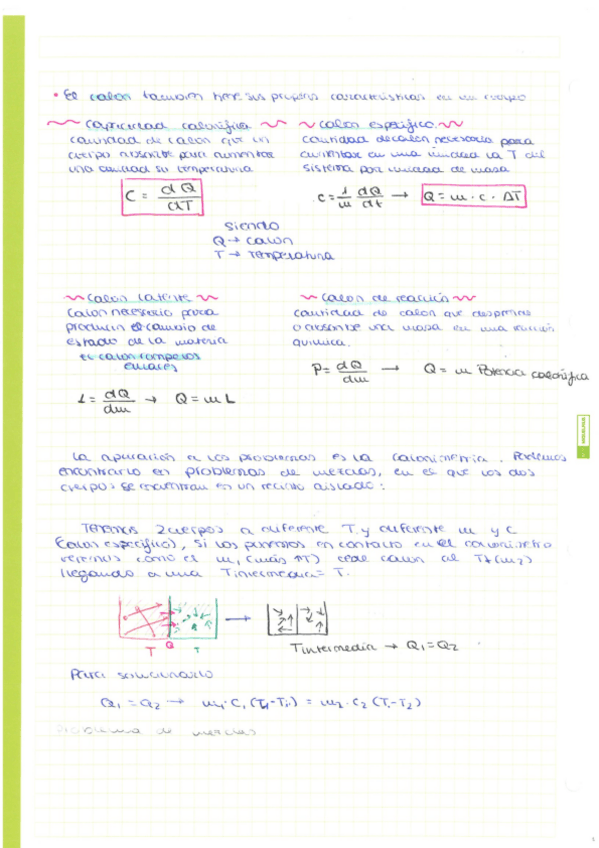 • El calor también tiene sus propias características en un cuerpo
capacidad calorífica
cantidad de calor que un
cuerpo absorbe para aumentar
una unidad su temperatura
C = dQ/dT
calor específico
cantidad de calor necesaria para
aumentar en una unidad la T del
sistema por unidad de masa
c = 1/m dQ/dt → Q = m · c · ΔT
siendo
Q → calor
T → Temperatura
calor latente
calor necesario para
producir el cambio de
estado de la materia
el calor rompe los
enlaces
L = dQ/dm → Q = m L
calor de reacción
cantidad de calor que desprende
o absorbe una masa en una reacción
química.
P = dQ/dm → Q = m Potencia calorífica
La aplicación a los problemas es la calorimetría. Podemos
encontrarlo en problemas de mezclas, en el que los dos
cuerpos se encuentran en un recinto aislado:
Tenemos 2 cuerpos a diferente T y diferente m y c
(calor específico), si los ponemos en contacto en el calorímetro
veremos cómo el m₁ (más ↑T) cede calor al T₂ (m₂)
llegando a una Tintermedia = T.
T Q T
Tintermedia → Q₁ = Q₂
Para solucionarlo
Q₁ = Q₂ → m₁ · C₁ (T₁-T) = m₂ · C₂ (T-T₂)
Problema de mezclas